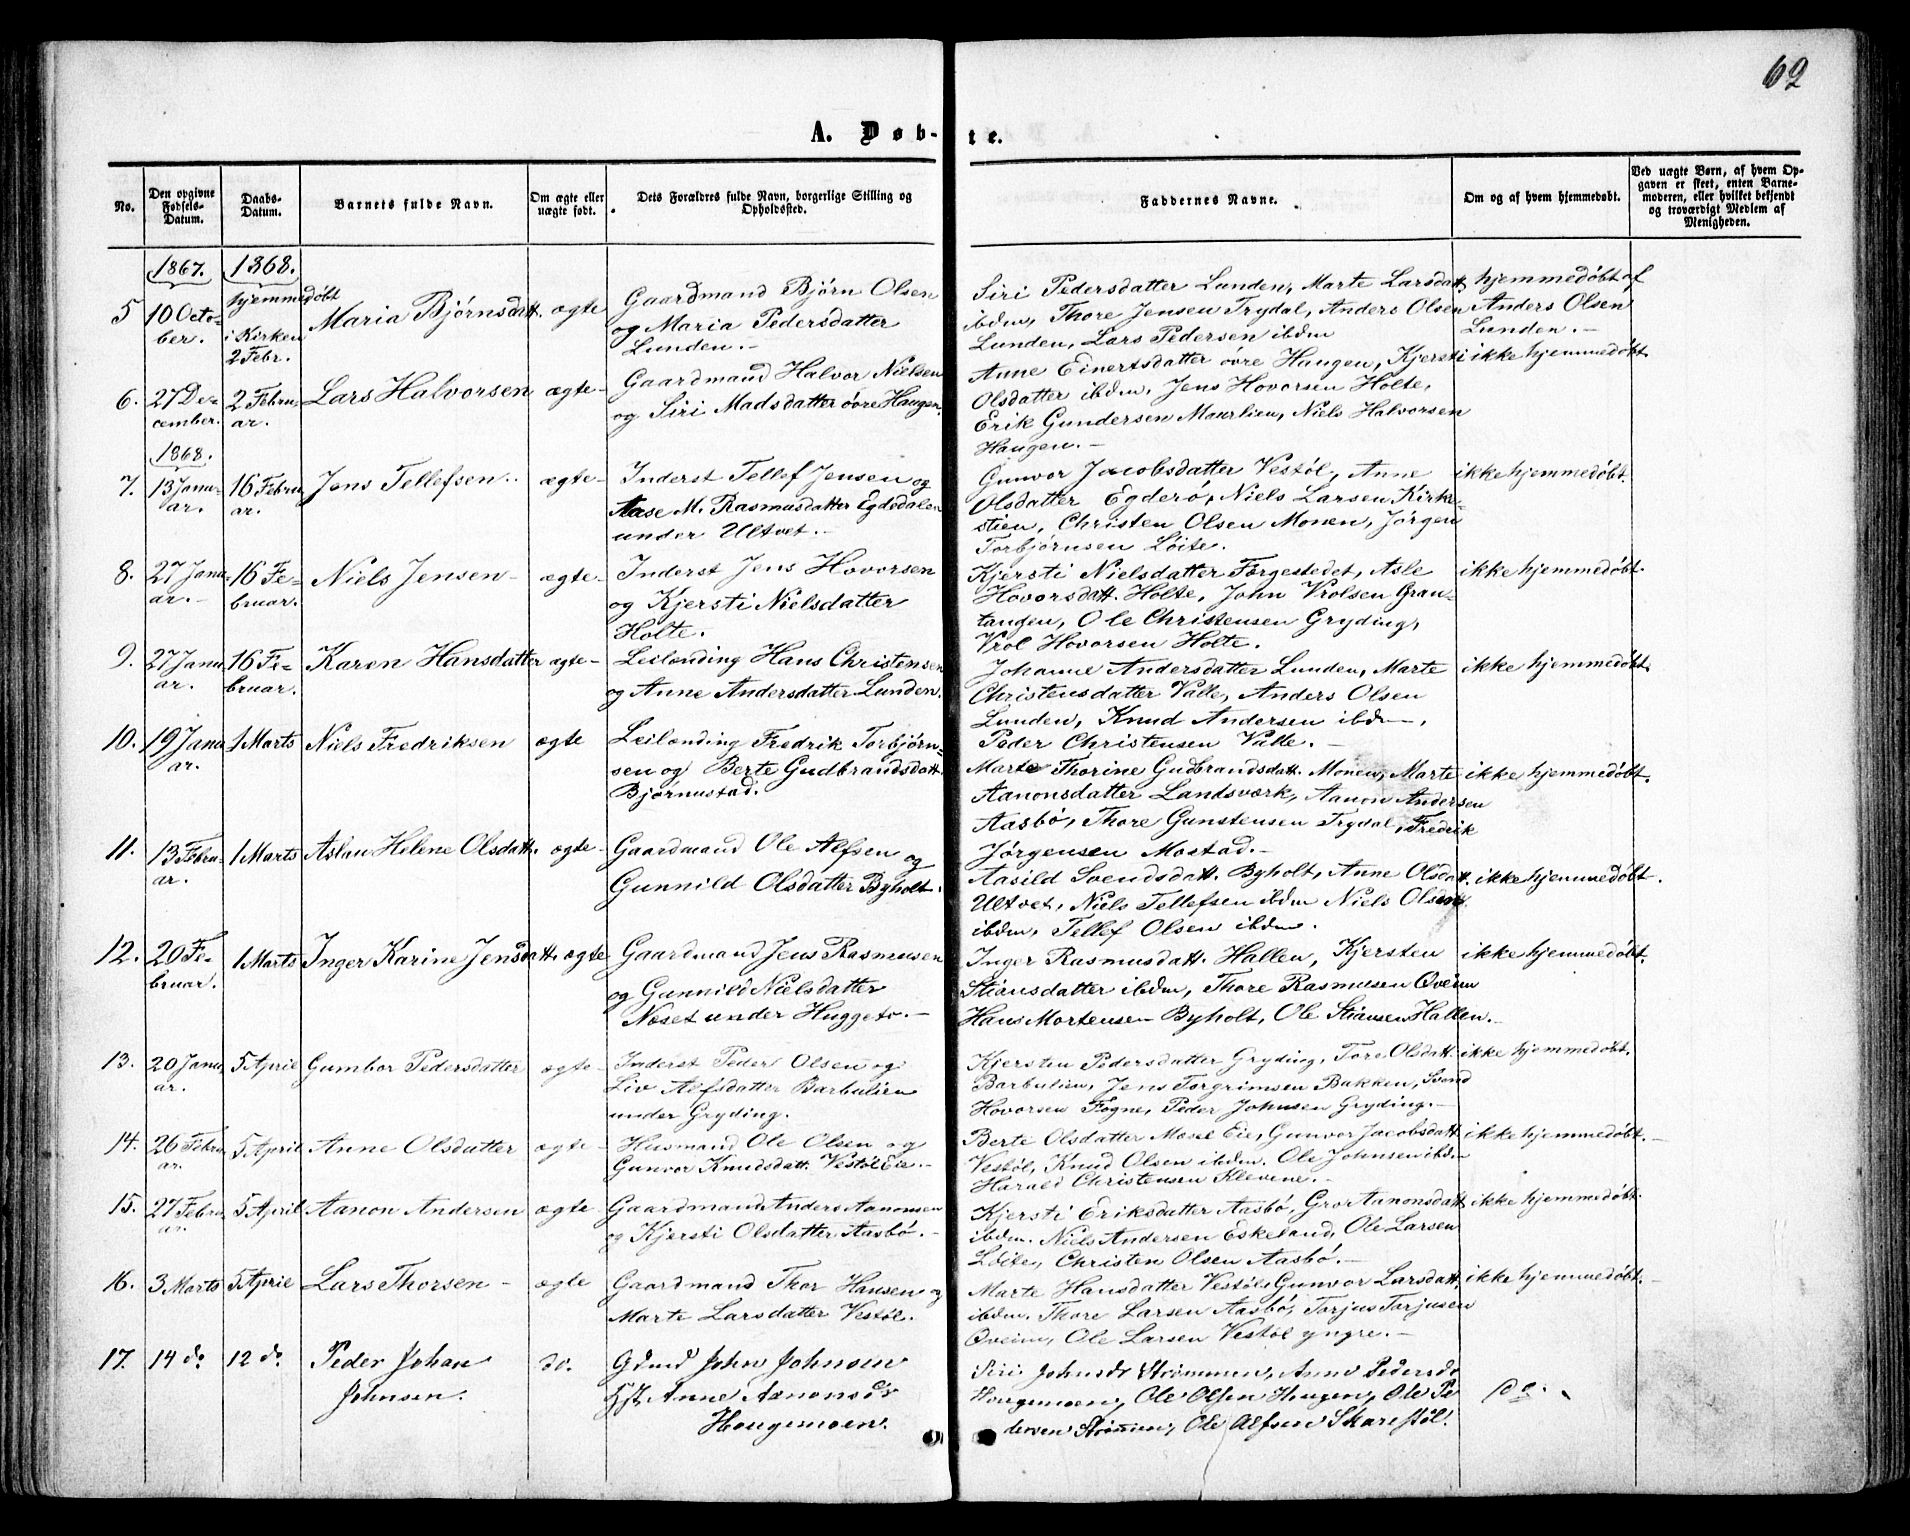 62
A. Døb-te.
No.
Den opgivne Fødsels-Datum.
Daabs-Datum.
Barnets fulde Navn.
Om ægte eller uægte født.
Dets Forældres fulde Navn, borgerlige Stilling og Opholdssted.
Faddernes Navne.
Om og af hvem hjemmedøbt.
Ved uægte Børn, af hvem Opgaven er skeet, enten Barnemoderen, eller hvilket bekjendt og troværdigt Medlem af Menigheden.
1867. 1868.
5 10 Octo-ber. hjemmedøbt i Kirken 2 Febr. Maria Bjørnsdatt. ægte
Gaardmand Bjørn Olsen
og Maria Pedersdatter
Lunden.-
Siri Pedersdatter Lunden, Marte Larsdatt.
ibdm, Thore Jensen Trydal, Anders Olsen
Lunden, Lars Pedersen ibdm
hjemmedøbt af
Anders Olsen
Lunden.-
6. 27 De-cember. 2 Febru-ar. Lars Halvorsen ægte-
Gaardmand Halvor Nielsen
og Siri Madsdatter övre Haugen.
Anne Einertsdatter övre Haugen, Kjersti
Olsdatter ibdm, Jens Hovorsen Holte,
Erik Gundersen Maurlien, Niels Halvorsen
Haugen.-
ikke hjemmedøbt.
1868.
7. 13 Janu-ar. 16 Febru-ar. Jens Tellefsen. ægte-
Inderst Tellef Jensen og
Aase M. Rasmusdatter Egdedalen
under Ultvet.-
Gunvor Jacobsdatter Vestöl, Anne
Olsdatter Egderö, Niels Larsen Kirk-
stien, Christen Olsen Monen, Jørgen
Torbjørnsen Löite.
ikke hjemmedøbt.
8. 27 Janu-ar.- 16 Fe-bruar. Niels Jensen- ægte-
Inderst Jens Hovorsen
og Kjersti Nielsdatter
Holte.
Kjersti Nielsdatter Færgestedet, Asle
Hovorsdatt. Holte, John Vrolsen Gran-
tangen, Ole Christensen Gryding,
Vrol Hovorsen Holte.
ikke hjemmedøbt.
9. 27 Janu-ar. 16 Fe-bruar. Karen Hansdatter ægte-
Leilænding Hans Christensen
og Anne Andersdatter Lunden.
Johanne Andersdatter Lunden, Marte
Christensdatter Valle, Anders Olsen
Lunden, Knud Andersen ibdm,
Peder Christensen Valle.-
ikke hjemmedøbt.
10. 19 Janu-ar. 1 Marts Niels Fredriksen ægte
Leilænding Fredrik Torbjørn-
sen og Berte Gudbrandsdatt.
Bjørnustad.
Marte Thorine Gudbrandsdatt. Monen, Marte
Aanonsdatter Landsværk, Aanon Andersen
Aasbö, Thore Gunstensen Trydal, Fredrik
Jørgensen Mostad.-
ikke hjemmedøbt.
11. 13 Febru-ar. 1 Marts Aslau Helene Olsdatt. ægte-
Gaardmand Ole Alfsen og
Gunnild Olsdatter Byholt.
Aasild Svendsdatt. Byholt, Anne Olsdatt.
Ultvet, Niels Tellefsen ibdm Niels Olsen
ibdm, Tellef Olsen ibdm.
ikke hjemmedøbt.
12. 20 Fe-bruar. 1 Marts Inger Karine Jensdatt. ægte
Gaardmand Jens Rasmusen
og Gunnild Nielsdatter
Næset under Huggeto.-
Inger Rasmusdatt. Hallen, Kjersten
Stiansdatter ibdm, Thore Rasmusen Öveim
Hans Mortensen Byholt, Ole Stiansen Hallen.-
ikke hjemmedøbt.
13. 20 Janu-ar. 5 April Gumbor Pedersdatter ægte-
Inderst Peder Olsen og
Liv Alfsdatter Barbulien
under Gryding.
Kjersten Pedersdatter Gryding, Tore Olsdatt.
Barbulien, Jens Torgrimsen Bakken, Svend
Hovorsen Fogne, Peder Johnsen Gryding.-
ikke hjemmedøbt.
14. 26 Febru-ar. 5 April Anne Olsdatter ægte-
Husmand Ole Olsen og
Gunvor Knudsdatt. Vestöl Eie.-
Berte Olsdatter Mosel Eie, Gunvor Jacobsdatt
Vestöl, Knud Olsen ibdm. Ole Johnsen ibdm
Harald Christensen Klevene.
ikke hjemmedøbt.-
15. 27 Febru-ar. 5 April Aanon Andersen ægte-
Gaardmand Anders Aanonsen
og Kjersti Olsdatter Aasbö.-
Kjersti Eriksdatter Aasbö, Gro Aanonsdatt.
ibdm. Niels Andersen Eskeland, Ole Larsen
Löite, Christen Olsen Aasbö.-
ikke hjemmedøbt.
16. 3 Marts 5 April Lars Thorsen- ægte
Gaardmand Thor Hansen og
Marte Larsdatter Vestöl.
Marte Hansdatter Vestöl, Gunvor Larsdatt.
ibdm. Thore Larsen Aasbö, Torjus Torjusen
Öveim, Ole Larsen Vestöl yngre.-
ikke hjemmedøbt.-
17. 14 do 12 do Peder Johan Johnsen. do.
Gdmd John Johnsen
Hst. Anne Aanonsdr
Hougemoen.
Siri Johnsdr Strømmen, Anne Pedersdr
Hougemoen, Ole Olsen Hougen, Ole Pe
dersen Strømmen, Ole Alfsen Skarestöl.